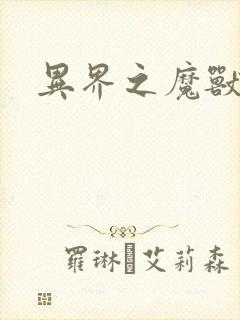 異界之魔獸
羅琳艾莉森